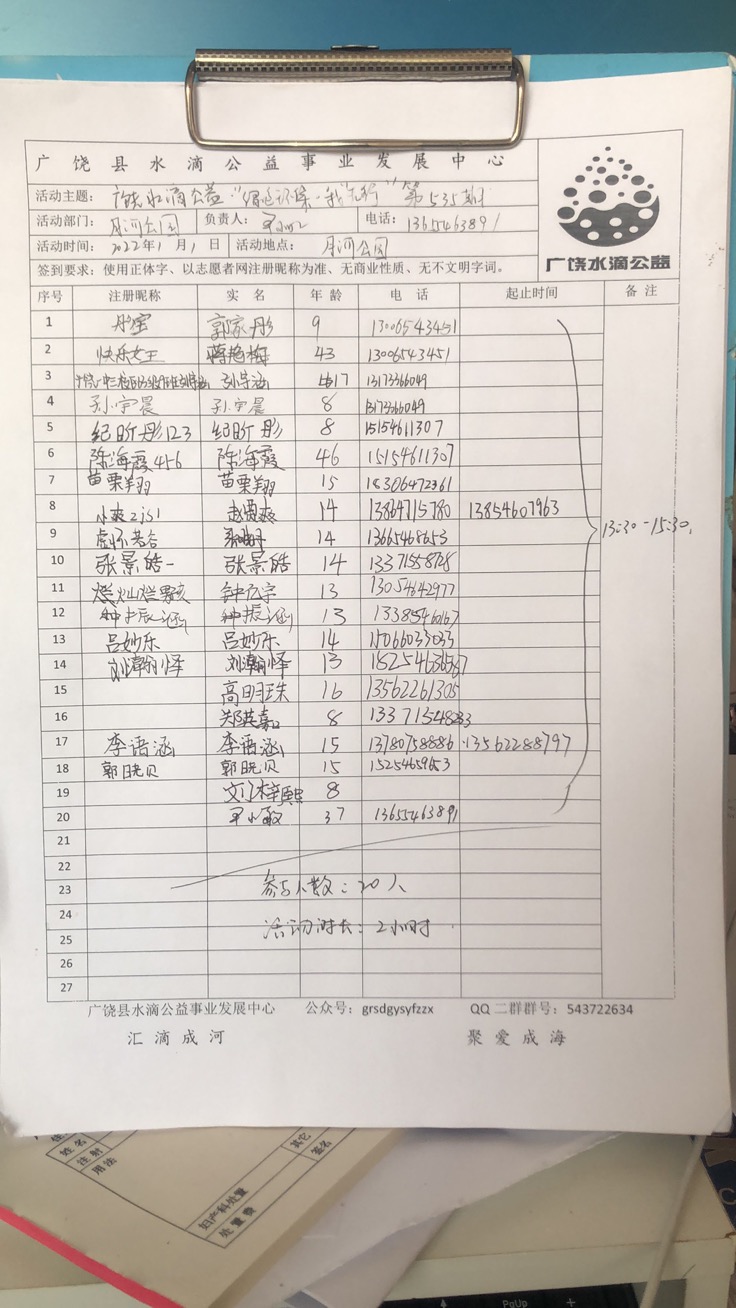 广饶县水滴公益事业发展中心
活动主题：广饶水滴公益·"绿色环保·我先行"第535期
活动部门：月河公园 负责人： 电话：13655463891
活动时间：2022年1月1日 活动地点：月河公园
签到要求：使用正体字、以志愿者网注册昵称为准、无商业性质、无不文明字词。
广饶水滴公益
序号 注册昵称 实名 年龄 电话 起止时间 备注
1 彤宝 郭家彤 9 13006543451
2 快乐女王 蒋艳梅 43 13006543451
3 17 13173366049
4 孙宇晨 孙宇晨 8 13173366049
5 纪昕彤123 纪昕彤 8 15154611307
6 陈海霞456 陈海霞 46 15154611307
7 苗栗翔 苗栗翔 15 18306472361
8 小爽zjs1 14 13864715780 13854607963
9 虚怀若谷 14 13665468653
13:30-15:30
10 张景皓一 张景皓 14
11 钟亿宇 13 13054642977
12 种振涵 种振涵 13
13 吕妙乐 吕妙乐 14 15066033033
14 刘瀚怿 刘瀚怿 13
15 高明珠 16 13562261305
16 郑淇嘉 8
17 李语涵 李语涵 15 13780758886 13562288797
18 郭晓贝 郭晓贝 15 15254659653
19 8
20 37 13655463891
21
22
23 参与人数：20人
24
25 活动时长：2小时
26
27
广饶县水滴公益事业发展中心 公众号：grsdgysyfzzx QQ二群群号：543722634
汇滴成河 聚爱成海
姓名
注射
用法
其它
签名
妇产科处置
处置费
PgUp +